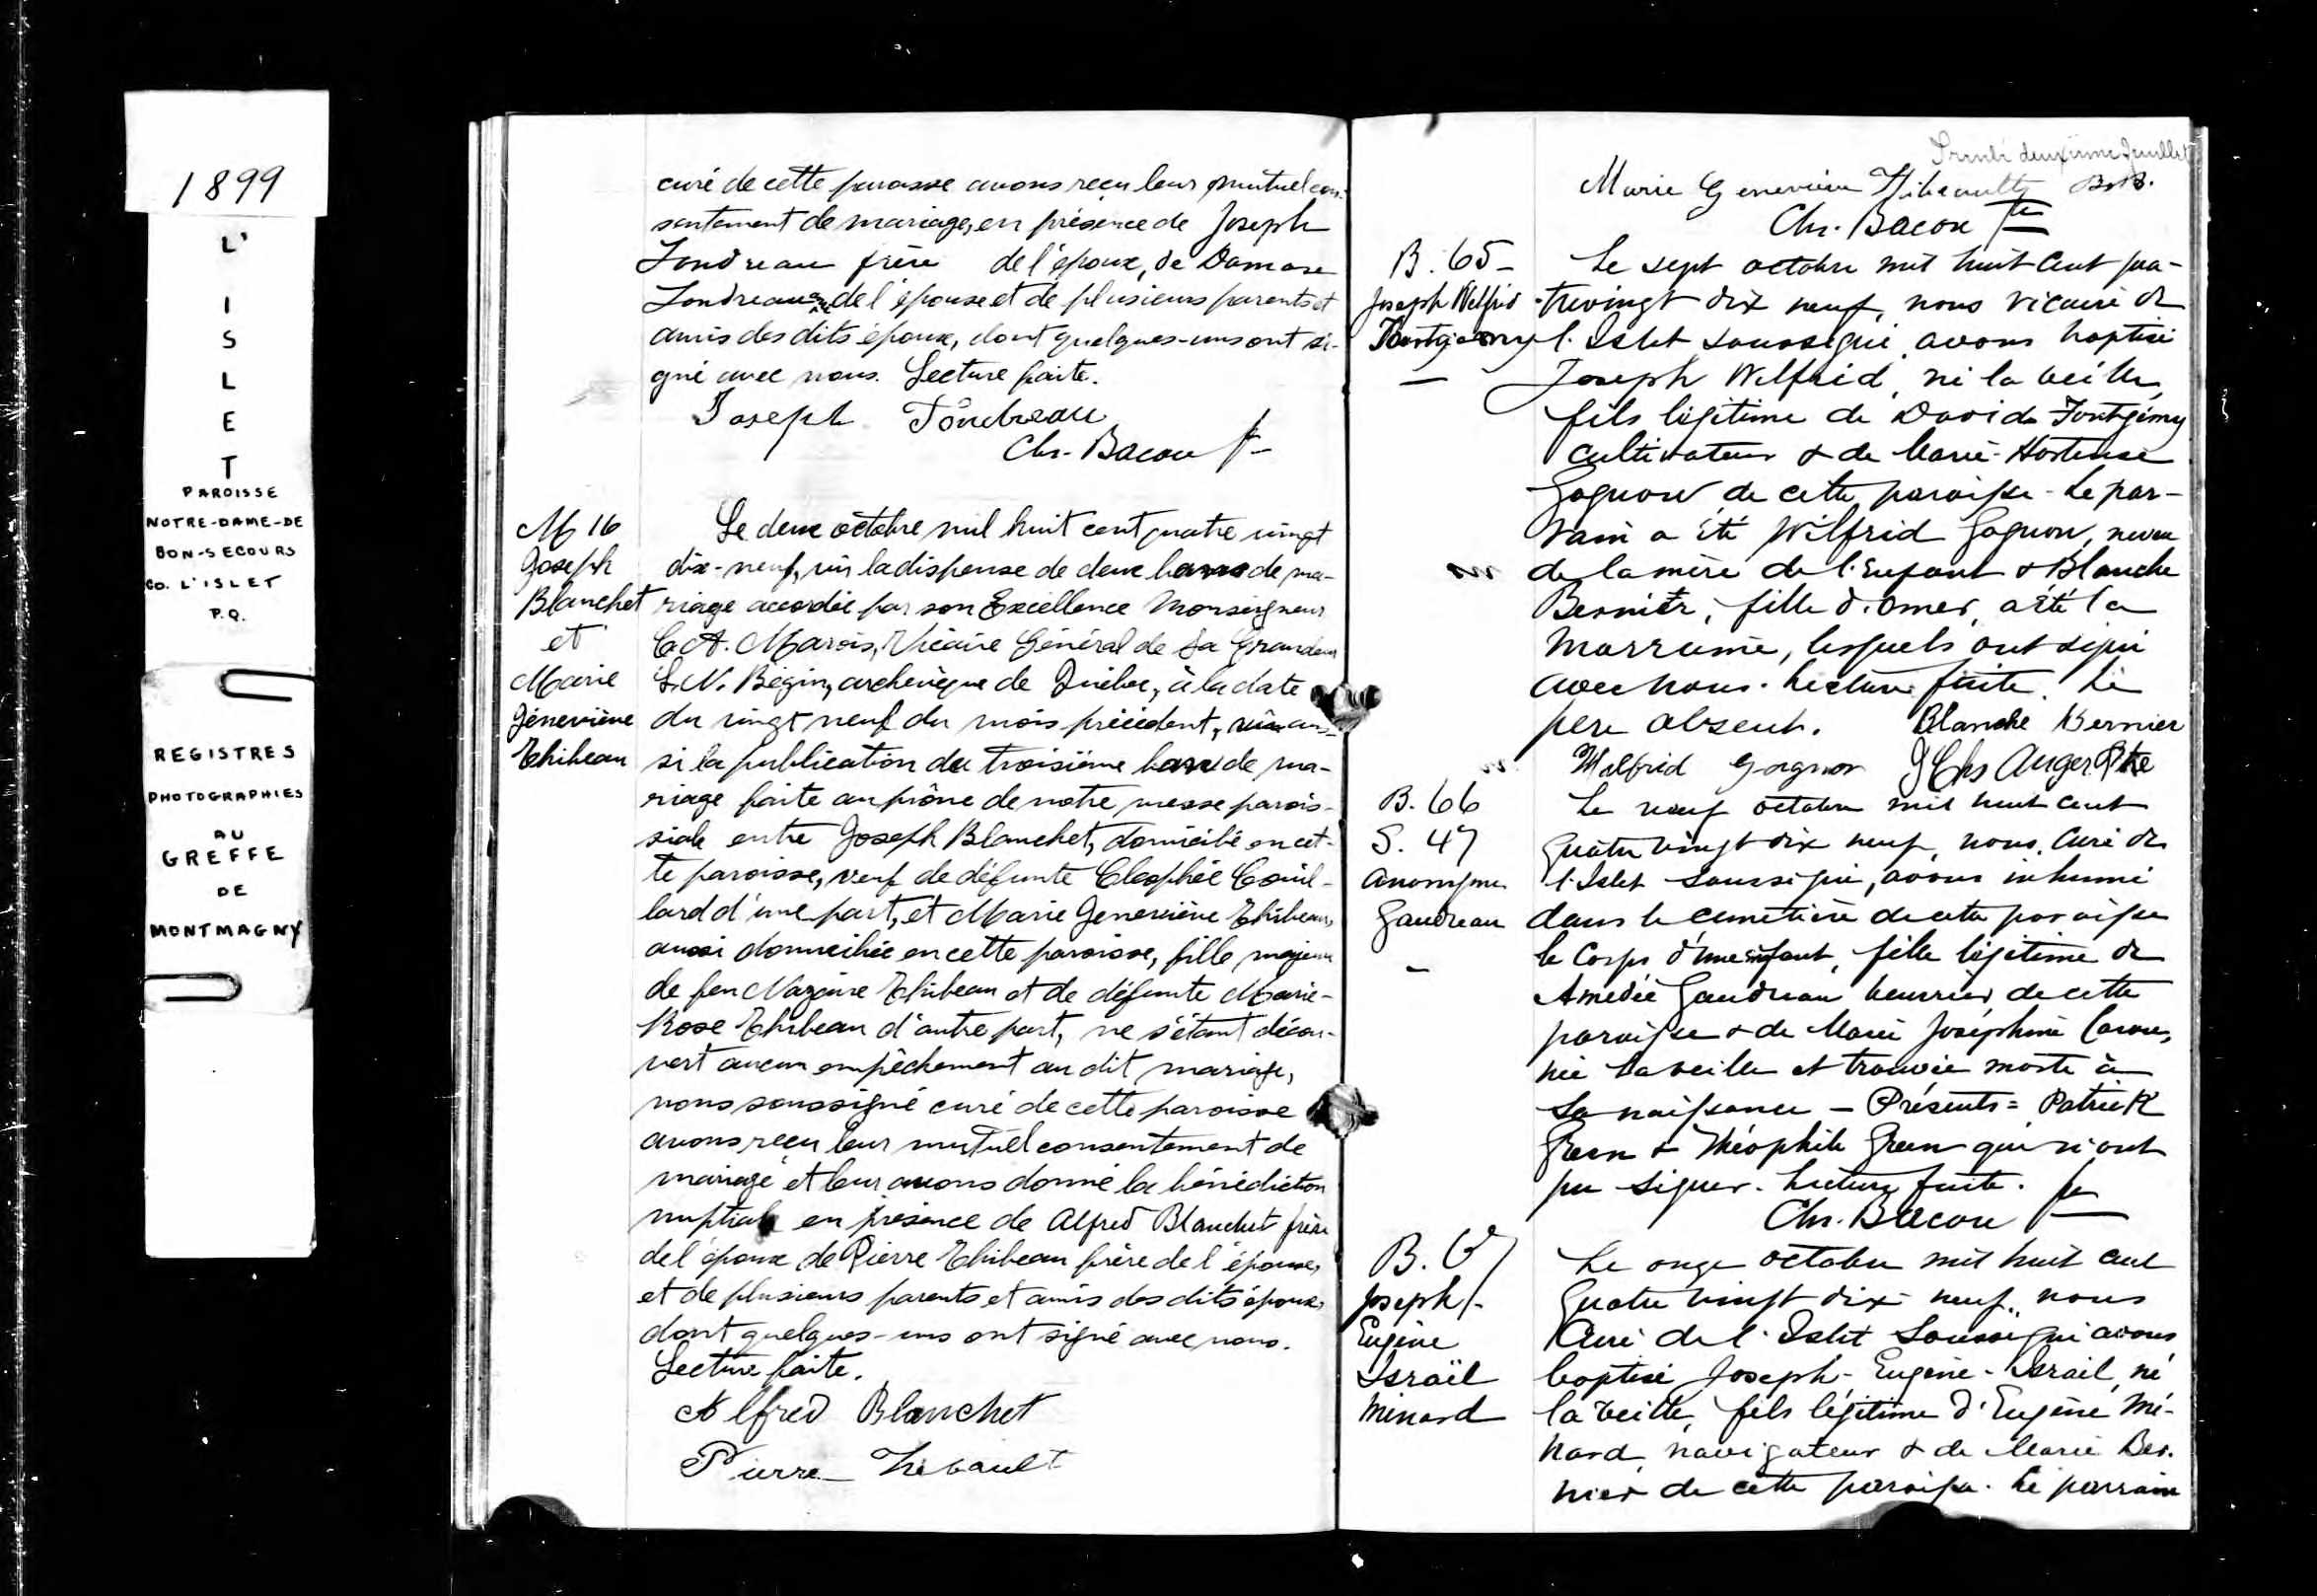 1899
L'
I
S
L
E
T
PAROISSE
NOTRE-DAME-DE
BON-SECOURS
CO. L'ISLET
P.Q.
REGISTRES
PHOTOGRAPHIES
AU
GREFFE
DE
MONTMAGNY
curé de cette paroisse avons reçu leur mutuel con-
sentement de mariage, en présence de Joseph
Fondreau frère de l'époux, de Damase
de l'épouse et de plusieurs parents et
amis des dits époux, dont quelques-uns ont si-
gné avec nous. Lecture faite.
Joseph
Chs. Bacon
M 16
Joseph
Blanchet
et
Marie
Géneviève
Thibeau
Le deux octobre mil huit cent quatre vingt
dix-neuf, vu la dispense de deux bans de ma-
riage accordée par son Excellence Monseigneur
C. A. Marois, Vicaire Général de Sa Grandeur
L. N. Bégin, archevêque de Québec, à la date
du vingt neuf du mois précédent, vu aus-
si la publication du troisième ban de ma-
riage faite au prône de notre messe parois-
siale entre Joseph Blanchet, domicilié en cet-
te paroisse, veuf de défunte Cléophée Couil-
lard d'une part, et Marie Geneviève Thibeau,
aussi domiciliée en cette paroisse, fille majeure
de feu Nazaire Thibeau et de défunte Marie-
Rose Thibeau d'autre part, ne s'étant décou-
vert aucun empêchement au dit mariage,
nous soussigné curé de cette paroisse
avons reçu leur mutuel consentement de
mariage et leur avons donné la bénédiction
nuptiale en présence de Alfred Blanchet frère
de l'époux de Pierre Thibeau frère de l'épouse,
et de plusieurs parents et amis des dits époux,
dont quelques-uns ont signé avec nous.
Lecture faite.
Alfred Blanchet
Pierre Thibault
deuxième feuillet
Marie Geneviève Thibault
Chs. Bacon Ptre
B. 65-
Joseph Wilfrid
Le sept octobre mil huit cent qua-
trevingt dix neuf, nous vicaire de
l'Islet soussigné avons baptisé
Joseph Wilfrid, né la veille,
fils légitime de David
cultivateur & de Marie-Hortense
Gagnon de cette paroisse - Le par-
rain a été Wilfrid Gagnon, neveu
de la mère de l'enfant & Blanche
Bernier, fille d'Omer, a été la
marraine, lesquels ont signé
avec nous. Lecture faite. Le
père absent. Blanche Bernier
Wilfrid Gagnon J Chs Auger Ptre
B. 66
S. 47
Anonyme
Gaudreau
Le neuf octobre mil huit cent
quatre vingt dix neuf, nous, curé de
l'Islet soussigné, avons inhumé
dans le cimetière de cette paroisse
le corps d'une enfant, fille légitime de
Amédée Gaudreau beurrier, de cette
paroisse & de Marie Joséphine Caron,
née la veille et trouvée morte à
sa naissance - Présents = Patrick
Green & Théophile Green qui n'ont
pu signer. Lecture faite.
Chs. Bacon Ptre
B. 67
Joseph-
Eugène
Israël
Minard
Le onze octobre mil huit cent
quatre vingt dix neuf, nous
Curé de l'Islet soussigné avons
baptisé Joseph-Eugène-Israel, né
la veille, fils légitime d'Eugène Mi-
nard, navigateur & de Marie Ber-
nier de cette paroisse. Le parrain